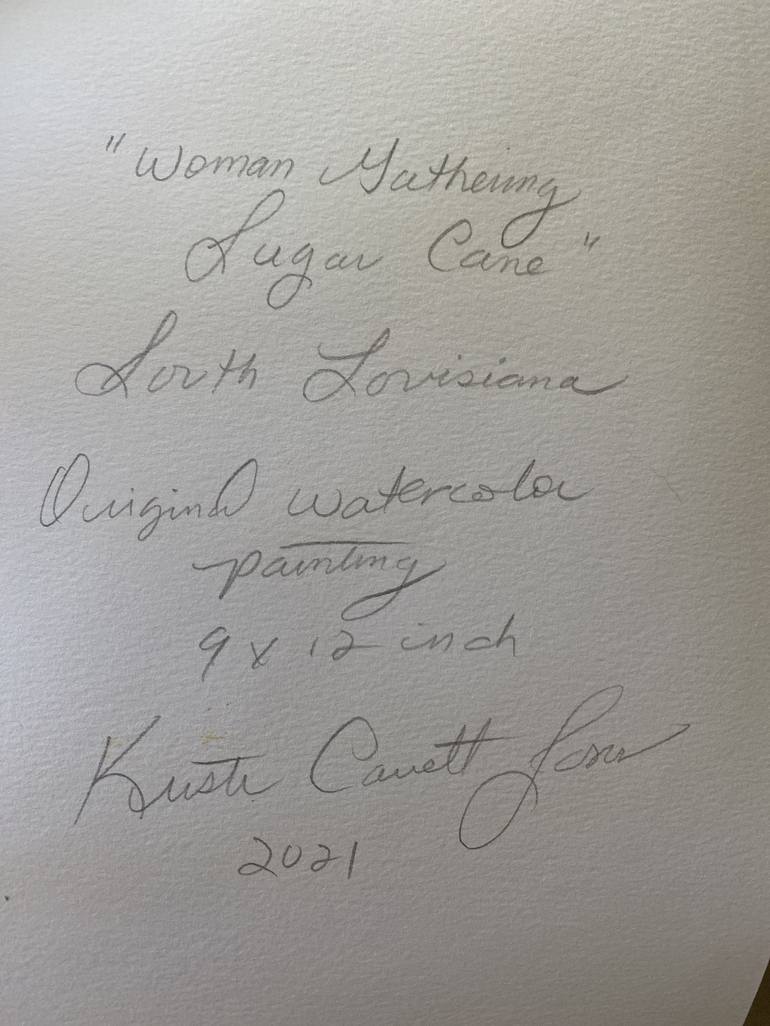 "Woman Gathering
Sugar Cane"
South Louisiana
Original watercolor
painting
9 x 12 inch
Kristi Cavett Jones
2021